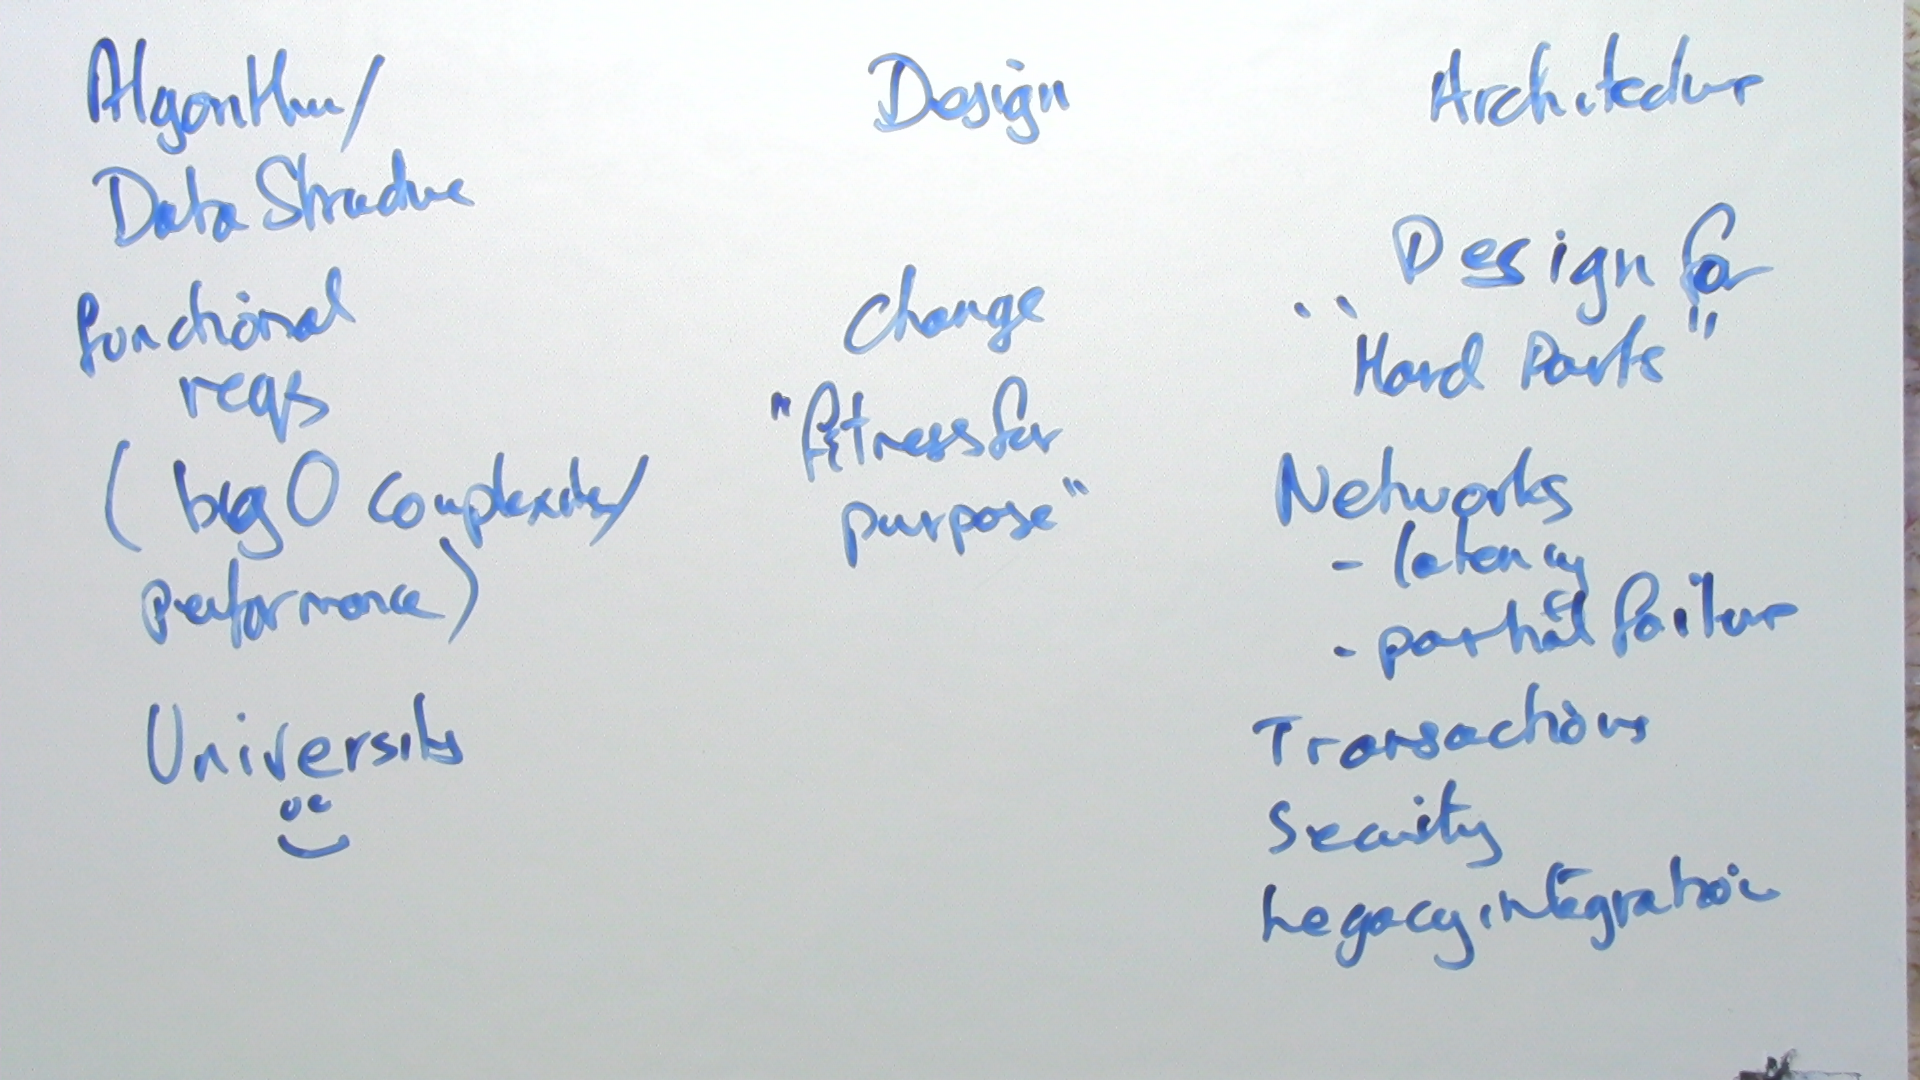 Algorithm/
Data Structure
functional
reqs
(big O complexity/
performance)
University
Design
change
"fitness for
purpose"
Architecture
Design for
"Hard Parts"
Networks
- latency
- partial failure
Transactions
Security
Legacy integration